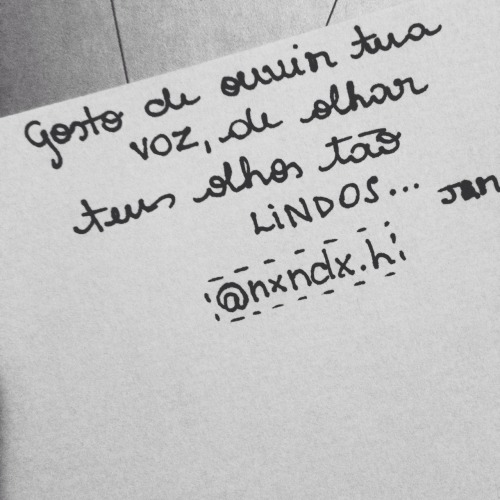 Gosto de ouvir tua
voz, de olhar
teus olhos tão
LiNDOS...
@nxndx.h